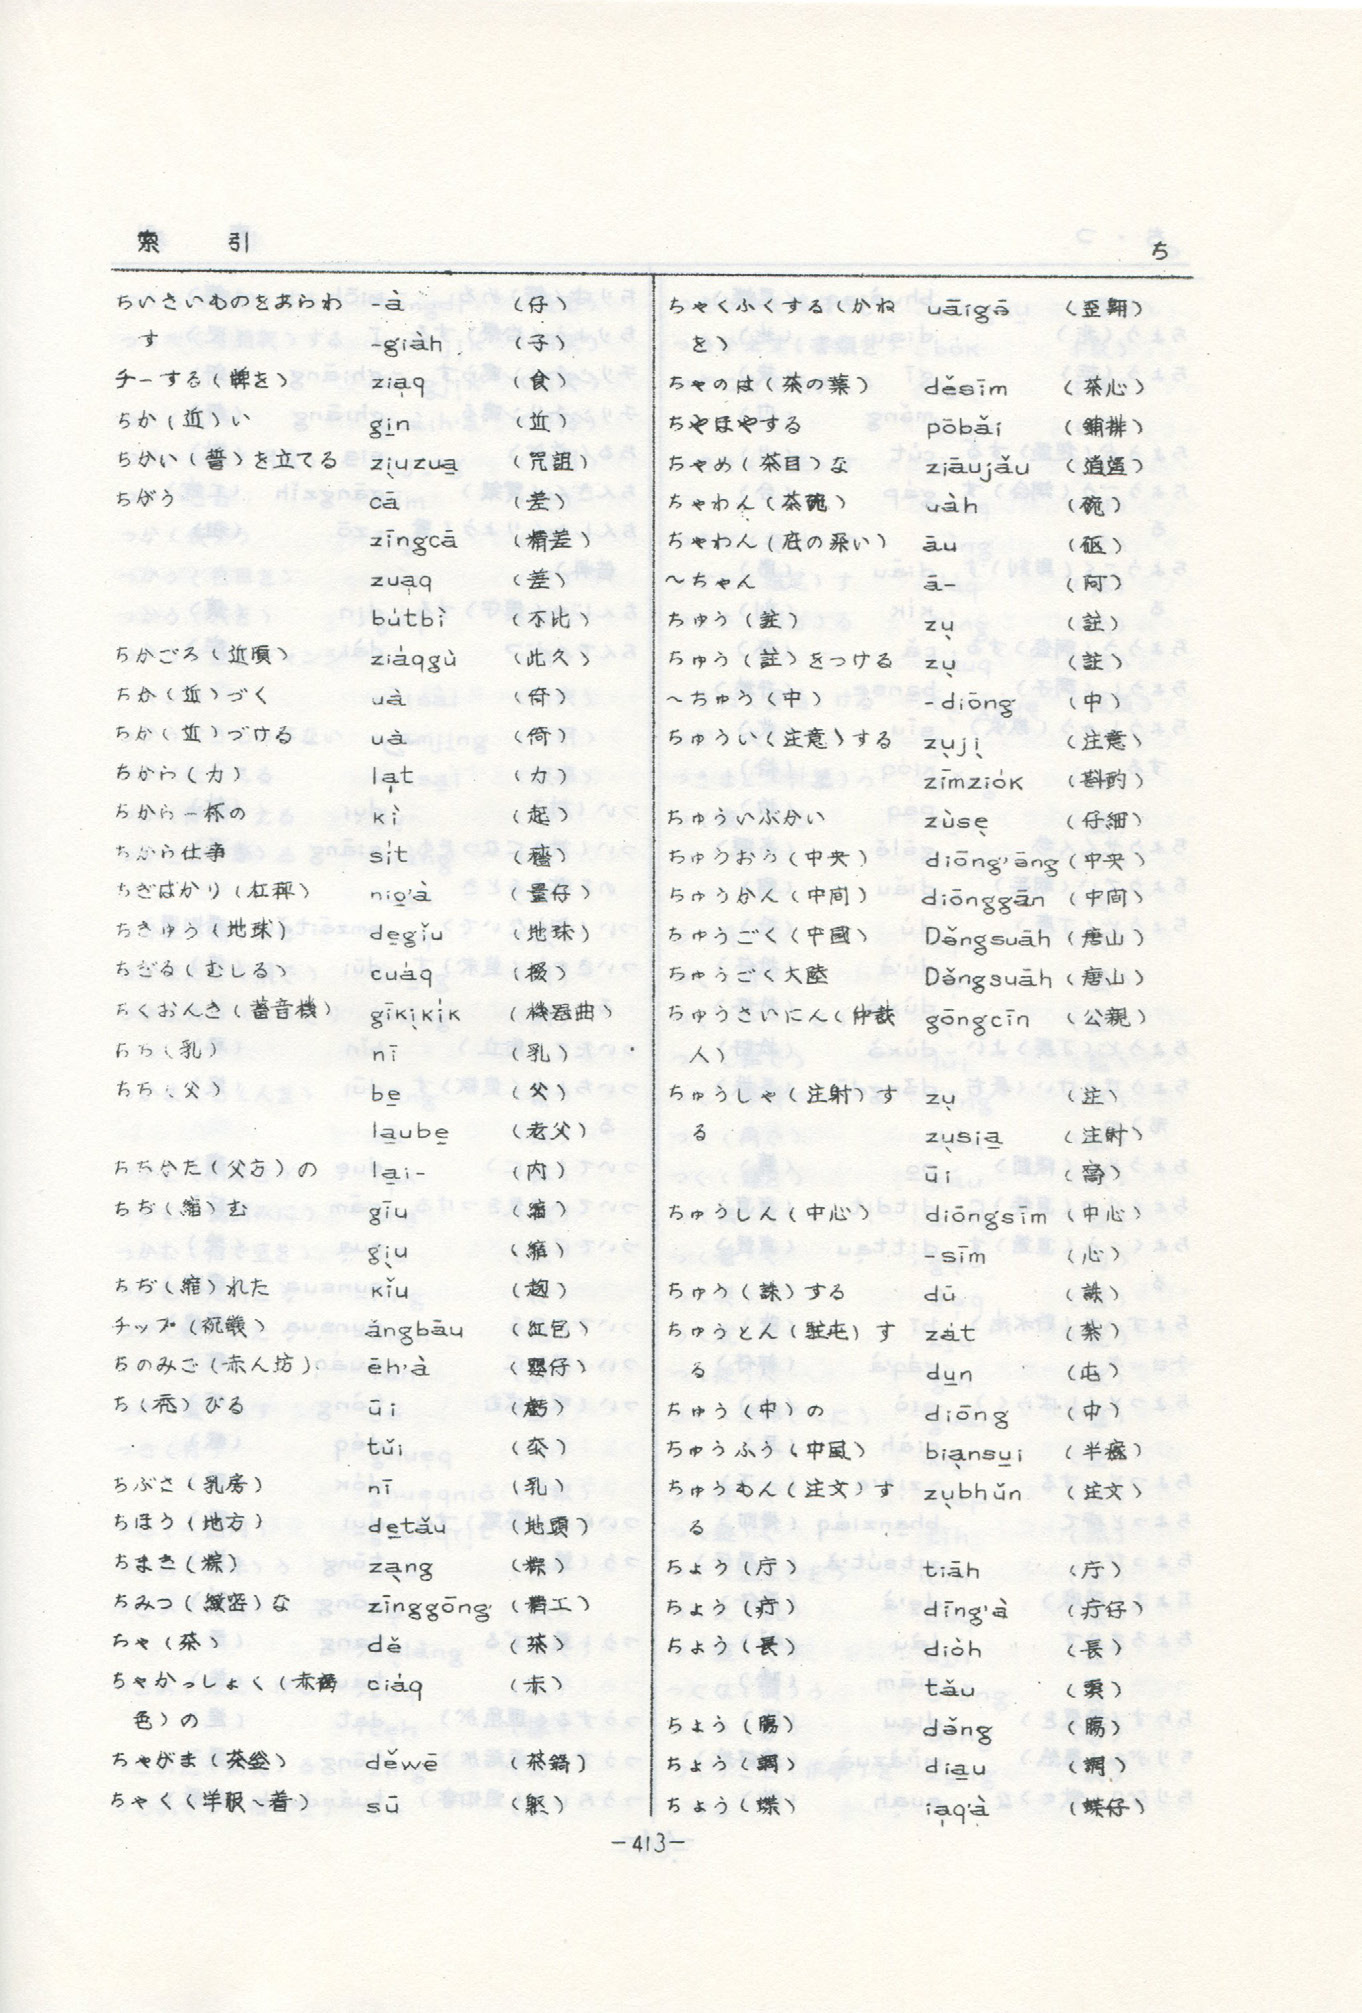 索　引
ち
ちいさいものをあらわ -à （仔）
す -giàh （子）
チーする（牌を） zia̍q （食）
ちか（近）い gi̱n （近）
ちかい（誓）を立てる zi̩uzua̱ （咒詛）
ちがう cā （差）
zīngcā （精差）
zua̩q （差）
bu̍tbì （不比）
ちかごろ（近頃） ziáqgù （此久）
ちか（近）づく uà （倚）
ちか（近）づける uà （倚）
ちから（力） la̩t （力）
ちから一杯の kì （起）
ちから仕事 sit （穡）
ちぎばかり（杠秤） nio̱'à （量仔）
ちきゅう（地球） de̱gǐu （地球）
ちぎる（むしる） cuáq （掇）
ちくおんき（蓄音機） gīki̩kík （機器曲）
ちち（乳） nī （乳）
ちち（父） be̱ （父）
la̱ube̱ （老父）
ちちかた（父方）の la̱i- （内）
ちぢ（縮）む gīu （縮）
gi̩u （縮）
ちぢ（縮）れた kǐu
チップ（祝儀） ǎngbāu （紅包）
ちのみご（赤ん坊） ēh'à （嬰仔）
ち（禿）びる ūi
tǔi
ちぶさ（乳房） nī （乳）
ちほう（地方） de̱tǎu （地頭）
ちまき（粽） za̩ng （粽）
ちみつ（緻密）な zīnggōng （精工）
ちゃ（茶） dě （茶）
ちゃかっしょく（赤褐 ciáq （赤）
色）の
ちゃがま（茶釜） děwē （茶鍋）
ちゃく（洋服、着） sū （軀）
ちゃくふくする（かね uāigō （歪翱）
を）
ちゃのは（茶の葉） děsīm （茶心）
ちやほやする pōbǎi （鋪排）
ちゃめ（茶目）な ziāujǎu
ちゃわん（茶碗） uàh （碗）
ちゃわん（底の深い） āu （甌）
～ちゃん ā- （阿）
ちゅう（註） zu̩ （註）
ちゅう（註）をつける zu̩ （註）
～ちゅう（中） -diōng （中）
ちゅうい（注意）する zu̩ji̩ （注意）
zīmziók （斟酌）
ちゅういぶかい zùse̩ （仔細）
ちゅうおう（中央） diōng'āng （中央）
ちゅうかん（中間） diōnggān （中間）
ちゅうごく（中國） Dǒngsuāh （唐山）
ちゅうごく大陸 Dǒngsuāh （唐山）
ちゅうさいにん（仲裁 gōngcīn （公親）
人）
ちゅうしゃ（注射）す zu̩ （注）
る zu̩sia̱ （注射）
ūi
ちゅうしん（中心） diōngsīm （中心）
-sīm （心）
ちゅう（誅）する dū （誅）
ちゅうとん（駐屯）す zát （紮）
る du̱n （屯）
ちゅう（中）の diōng （中）
ちゅうふう（中風） bia̩nsu̱i
ちゅうもん（注文）す zu̩bhǔn （注文）
る
ちょう（庁） tiāh （庁）
ちょう（疔） dīng'à （疔仔）
ちょう（長） dióh （長）
tǎu （頭）
ちょう（腸） dǒng （腸）
ちょう（蜩） dia̱u （蜩）
ちょう（蝶） ia̩q'à （蝶仔）
－413－